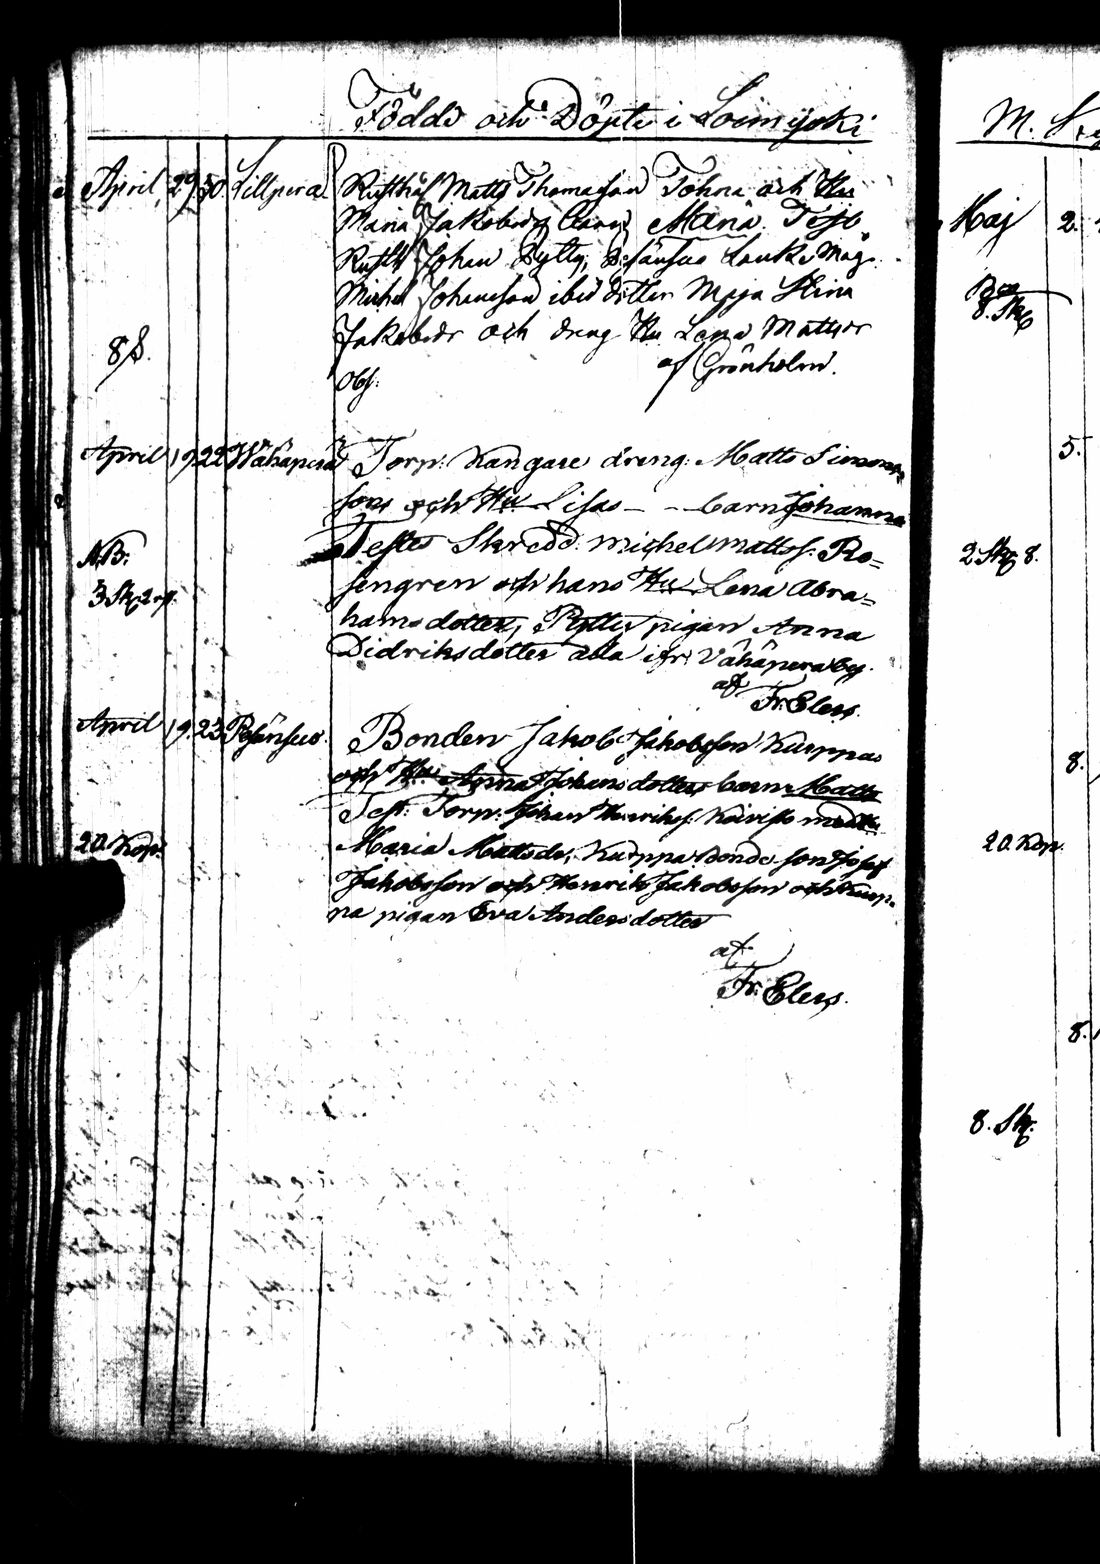 Födde och Döpte i Loimijoki
April 29 30 Lillpera Rusth. Matts Thomasson Tohna och Hu
Maria Jakobsdr barn Maria Test.
Rusth. Johan Rytty, Påfänsuo Mågen
Michel Johansson ibid Maja Stina
Jakobsdr och dreng Hu Lena Mattsdr
8 S. af Grönholm.
Obs:
April 19. 22 Wähäperä Torp: Kangare dreng: Matts Simons-
sons och Hu Lisas - - barn Johanna
N.B. Testes Skredd. Michel Mattss. Ro=
3 Sk: 2 rg. sengren och hans Hu Lena Abra=
hams dotter, Rytty pigan Anna
Didriksdotter alla ifr. Vähäperä by.
af Fr. Elers.
April 19. 23 Bonden Jakob Jakobsson Kurppas
och Hu Anna Johans dotter barn Matts
Test. Torp: Johan Henrikss. Koivisto
20 Kop. Maria Mattsdr, Kurppa Bonde son Josef
Jakobsson och Henrik Jakobsson och Kurp-
pa pigan Eva Anders dotter
af
Fr. Elers.
M.
Maj 2.
8. Sk
5.
2 Sk 8.
8.
20 Kop.
8.
8. Sk.